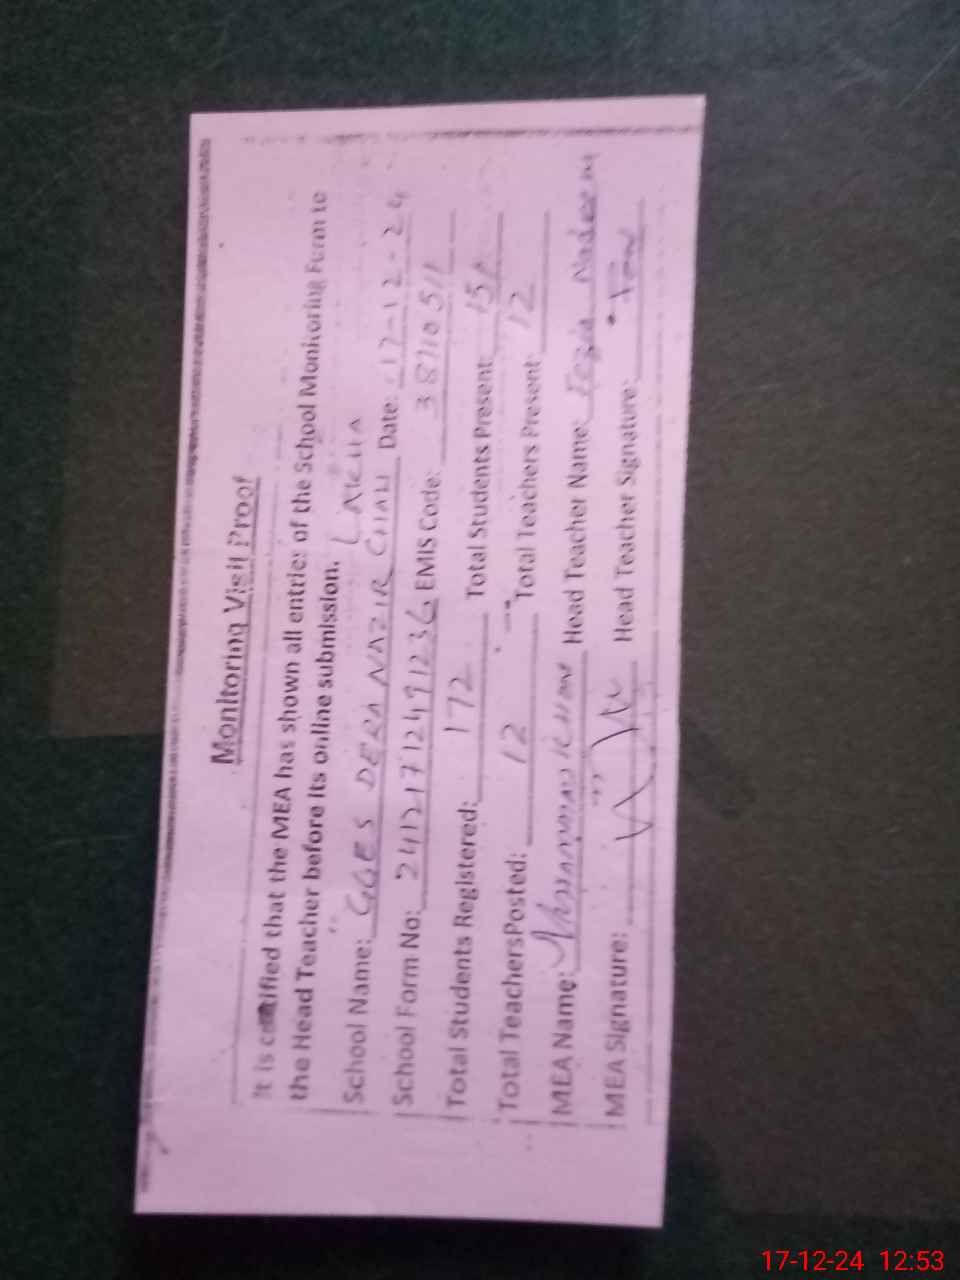 Monitoring Visit Proof
It is certified that the MEA has shown all entries of the School Monitoring Form to
the Head Teacher before its online submission.
School Name: GGES DERA NAZIR CHAH LAKHA Date: 17-12-24
School Form No: 24121712491236 EMIS Code: 38110511
Total Students Registered: 172 Total Students Present: 151
Total TeachersPosted: 12 Total Teachers Present: 12
MEA Name: Head Teacher Name: Nadeem
MEA Signature: Head Teacher Signature:
17-12-24 12:53